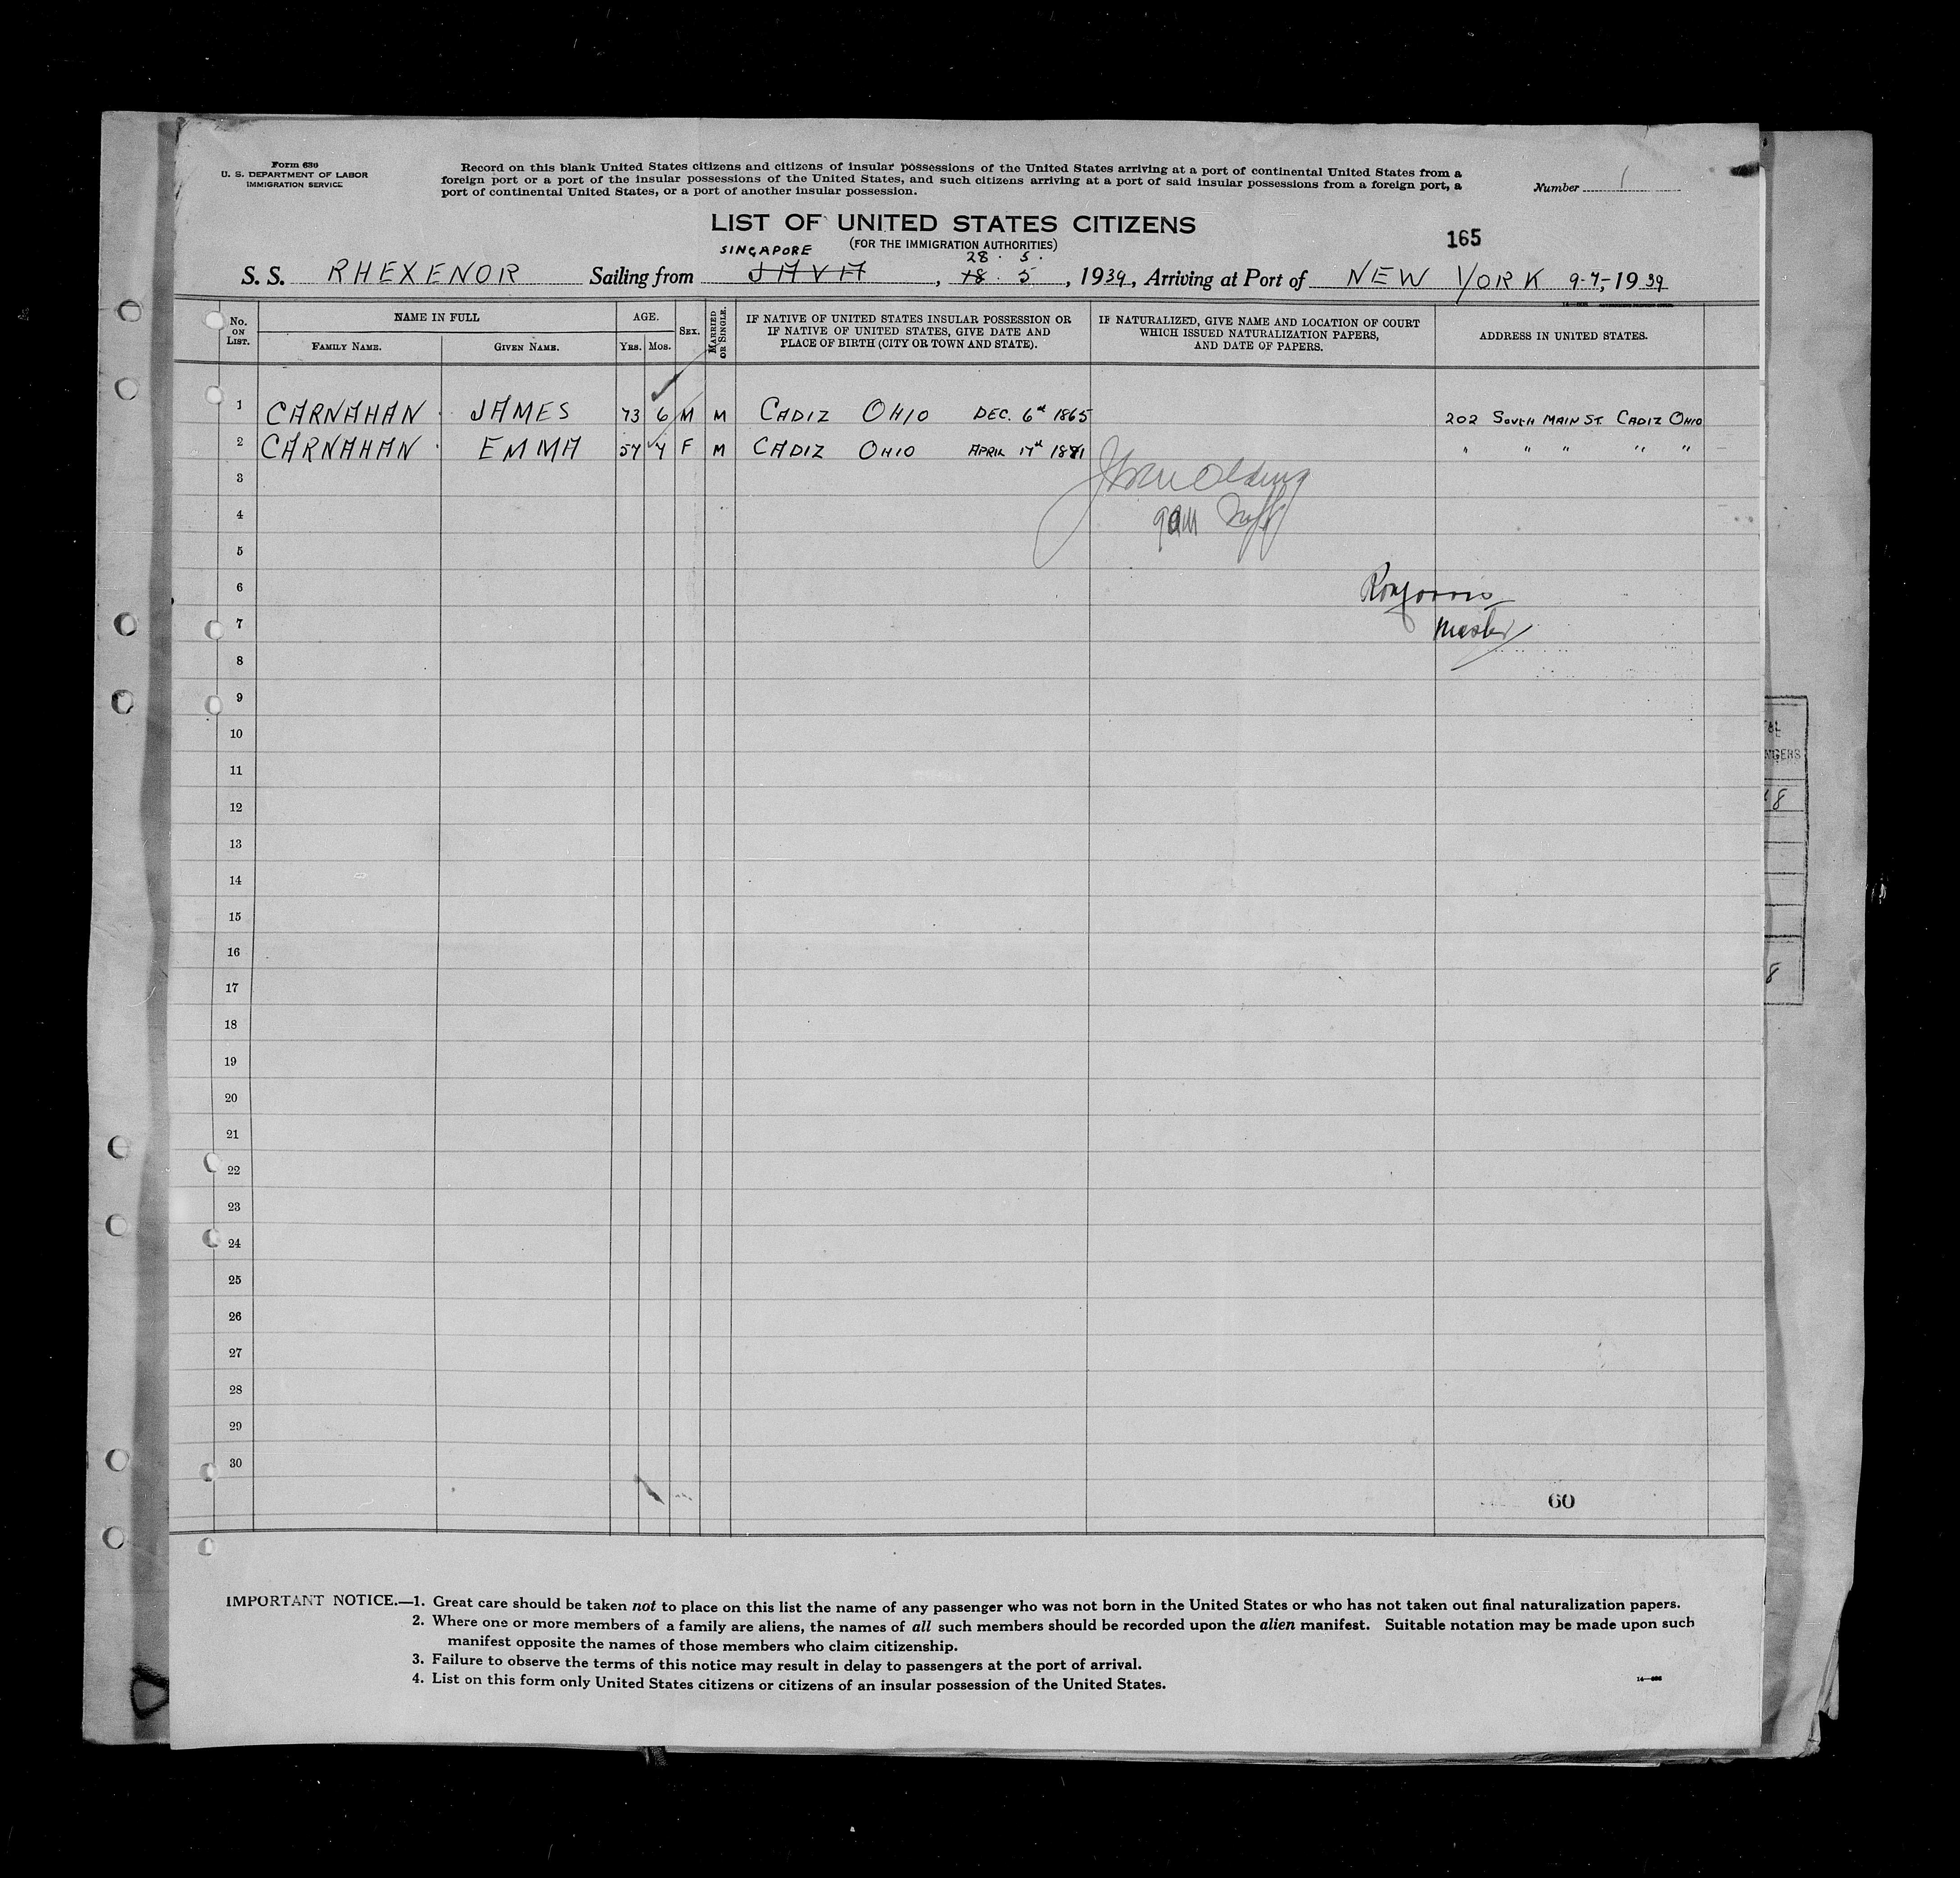 Form 630
U. S. DEPARTMENT OF LABOR
IMMIGRATION SERVICE
Record on this blank United States citizens and citizens of insular possessions of the United States arriving at a port of continental United States from a
foreign port or a port of the insular possessions of the United States, and such citizens arriving at a port of said insular possessions from a foreign port, a
port of continental United States, or a port of another insular possession.
Number 1
LIST OF UNITED STATES CITIZENS
(FOR THE IMMIGRATION AUTHORITIES)
165
SINGAPORE 28. 5.
S. S. RHEXENOR Sailing from JAVA, 18. 5, 1939, Arriving at Port of NEW YORK 9-7-, 1939
No. ON LIST.
NAME IN FULL
FAMILY NAME. GIVEN NAME.
AGE.
YRS. MOS.
SEX.
MARRIED OR SINGLE.
IF NATIVE OF UNITED STATES INSULAR POSSESSION OR
IF NATIVE OF UNITED STATES, GIVE DATE AND
PLACE OF BIRTH (CITY OR TOWN AND STATE).
IF NATURALIZED, GIVE NAME AND LOCATION OF COURT
WHICH ISSUED NATURALIZATION PAPERS,
AND DATE OF PAPERS.
ADDRESS IN UNITED STATES.
1 CARNAHAN JAMES 73 6 M M CADIZ OHIO DEC. 6th 1865 202 SOUTH MAIN ST. CADIZ OHIO
2 CARNAHAN EMMA 57 F M CADIZ OHIO APRIL 17th 1881 " " " " "
3
4
5
6
7
Master
8
9
10
11
12
13
14
15
16
17
18
19
20
21
22
23
24
25
26
27
28
29
30
60
IMPORTANT NOTICE.—1. Great care should be taken not to place on this list the name of any passenger who was not born in the United States or who has not taken out final naturalization papers.
2. Where one or more members of a family are aliens, the names of all such members should be recorded upon the alien manifest. Suitable notation may be made upon such
manifest opposite the names of those members who claim citizenship.
3. Failure to observe the terms of this notice may result in delay to passengers at the port of arrival.
4. List on this form only United States citizens or citizens of an insular possession of the United States.